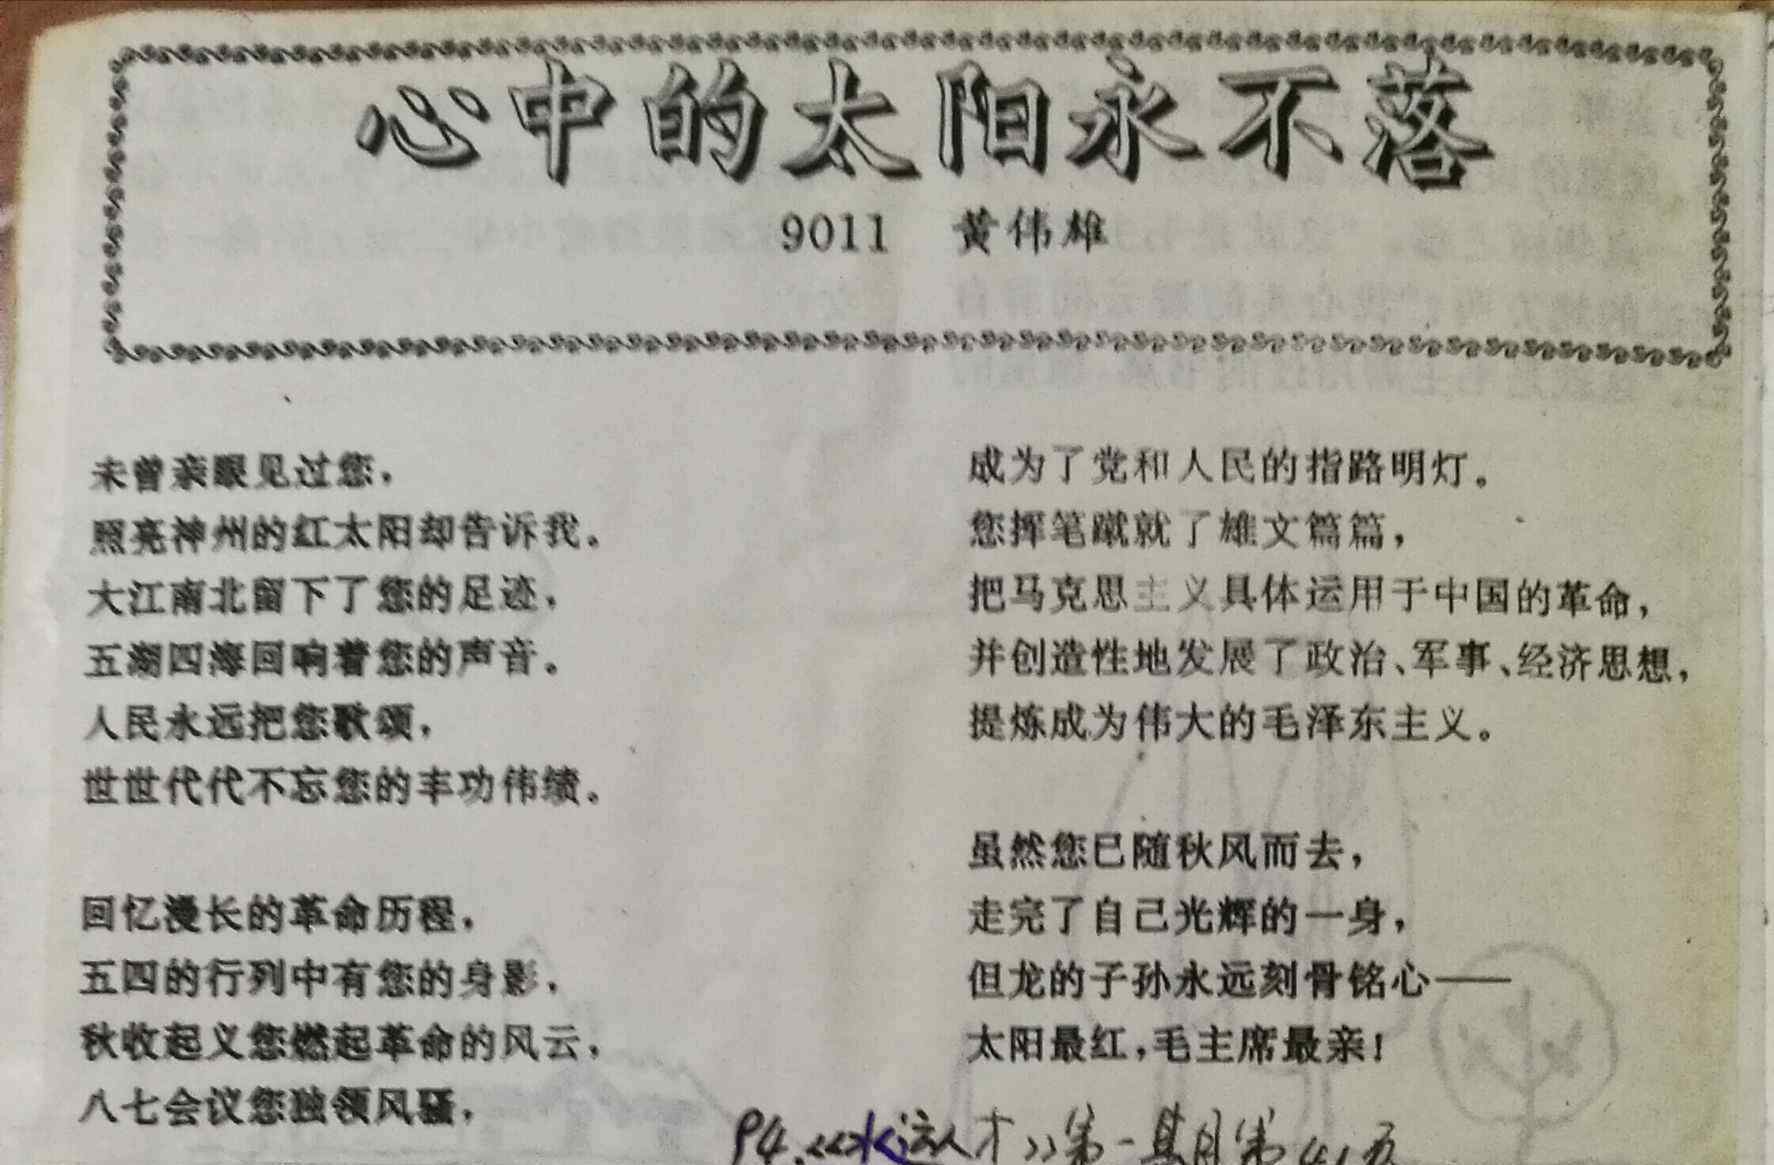 心中的太阳永不落
9011 黄伟雄
未曾亲眼见过您，
照亮神州的红太阳却告诉我。
大江南北留下了您的足迹，
五湖四海回响着您的声音。
人民永远把您歌颂，
世世代代不忘您的丰功伟绩。
回忆漫长的革命历程，
五四的行列中有您的身影，
秋收起义您燃起革命的风云，
八七会议您独领风骚，
成为了党和人民的指路明灯。
您挥笔蹴就了雄文篇篇，
把马克思主义具体运用于中国的革命，
并创造性地发展了政治、军事、经济思想，
提炼成为伟大的毛泽东主义。
虽然您已随秋风而去，
走完了自己光辉的一身，
但龙的子孙永远刻骨铭心——
太阳最红，毛主席最亲！
94.《《水运人才》》第一期第41页